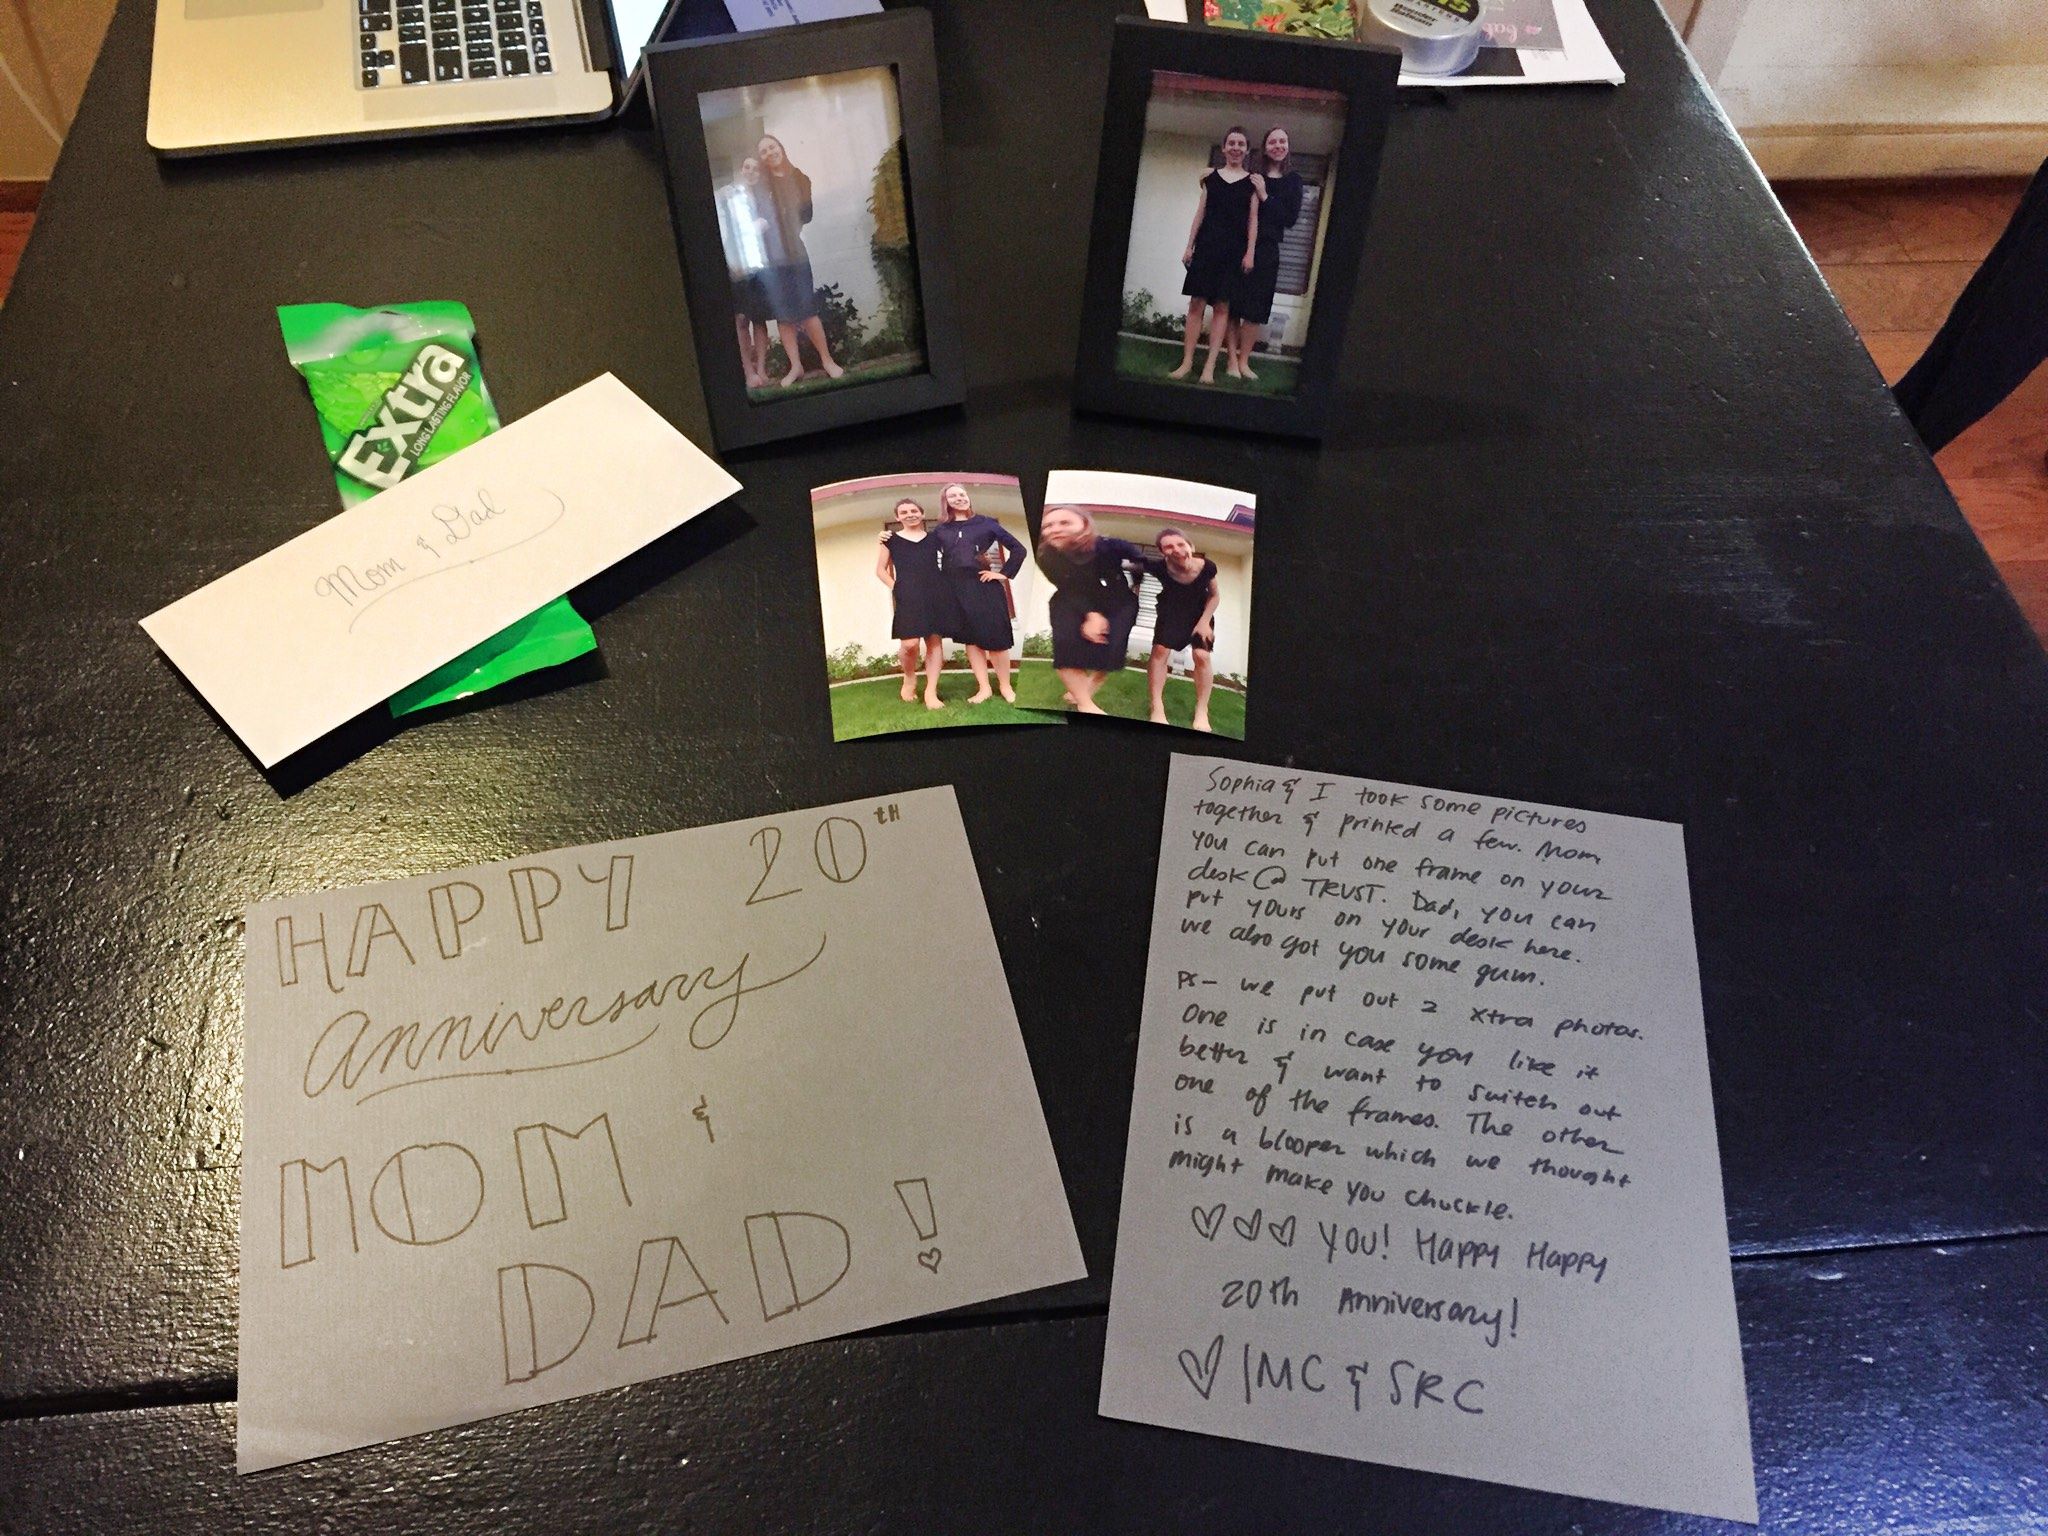 15
Wonder
Balsam
Extra
LONG LASTING FLAVOR
Mom & Dad
HAPPY 20TH
Anniversary
MOM &
DAD!
Sophia & I took some pictures
together & printed a few. Mom
you can put one frame on your
desk @ TRUST. Dad, you can
put yours on your desk here.
we also got you some gum.
PS- we put out 2 xtra photos.
One is in case you like it
better & want to switch out
one of the frames. The other
is a blooper which we thought
might make you chuckle.
♡♡♡ YOU! Happy Happy
20th Anniversary!
♡ IMC & SRC